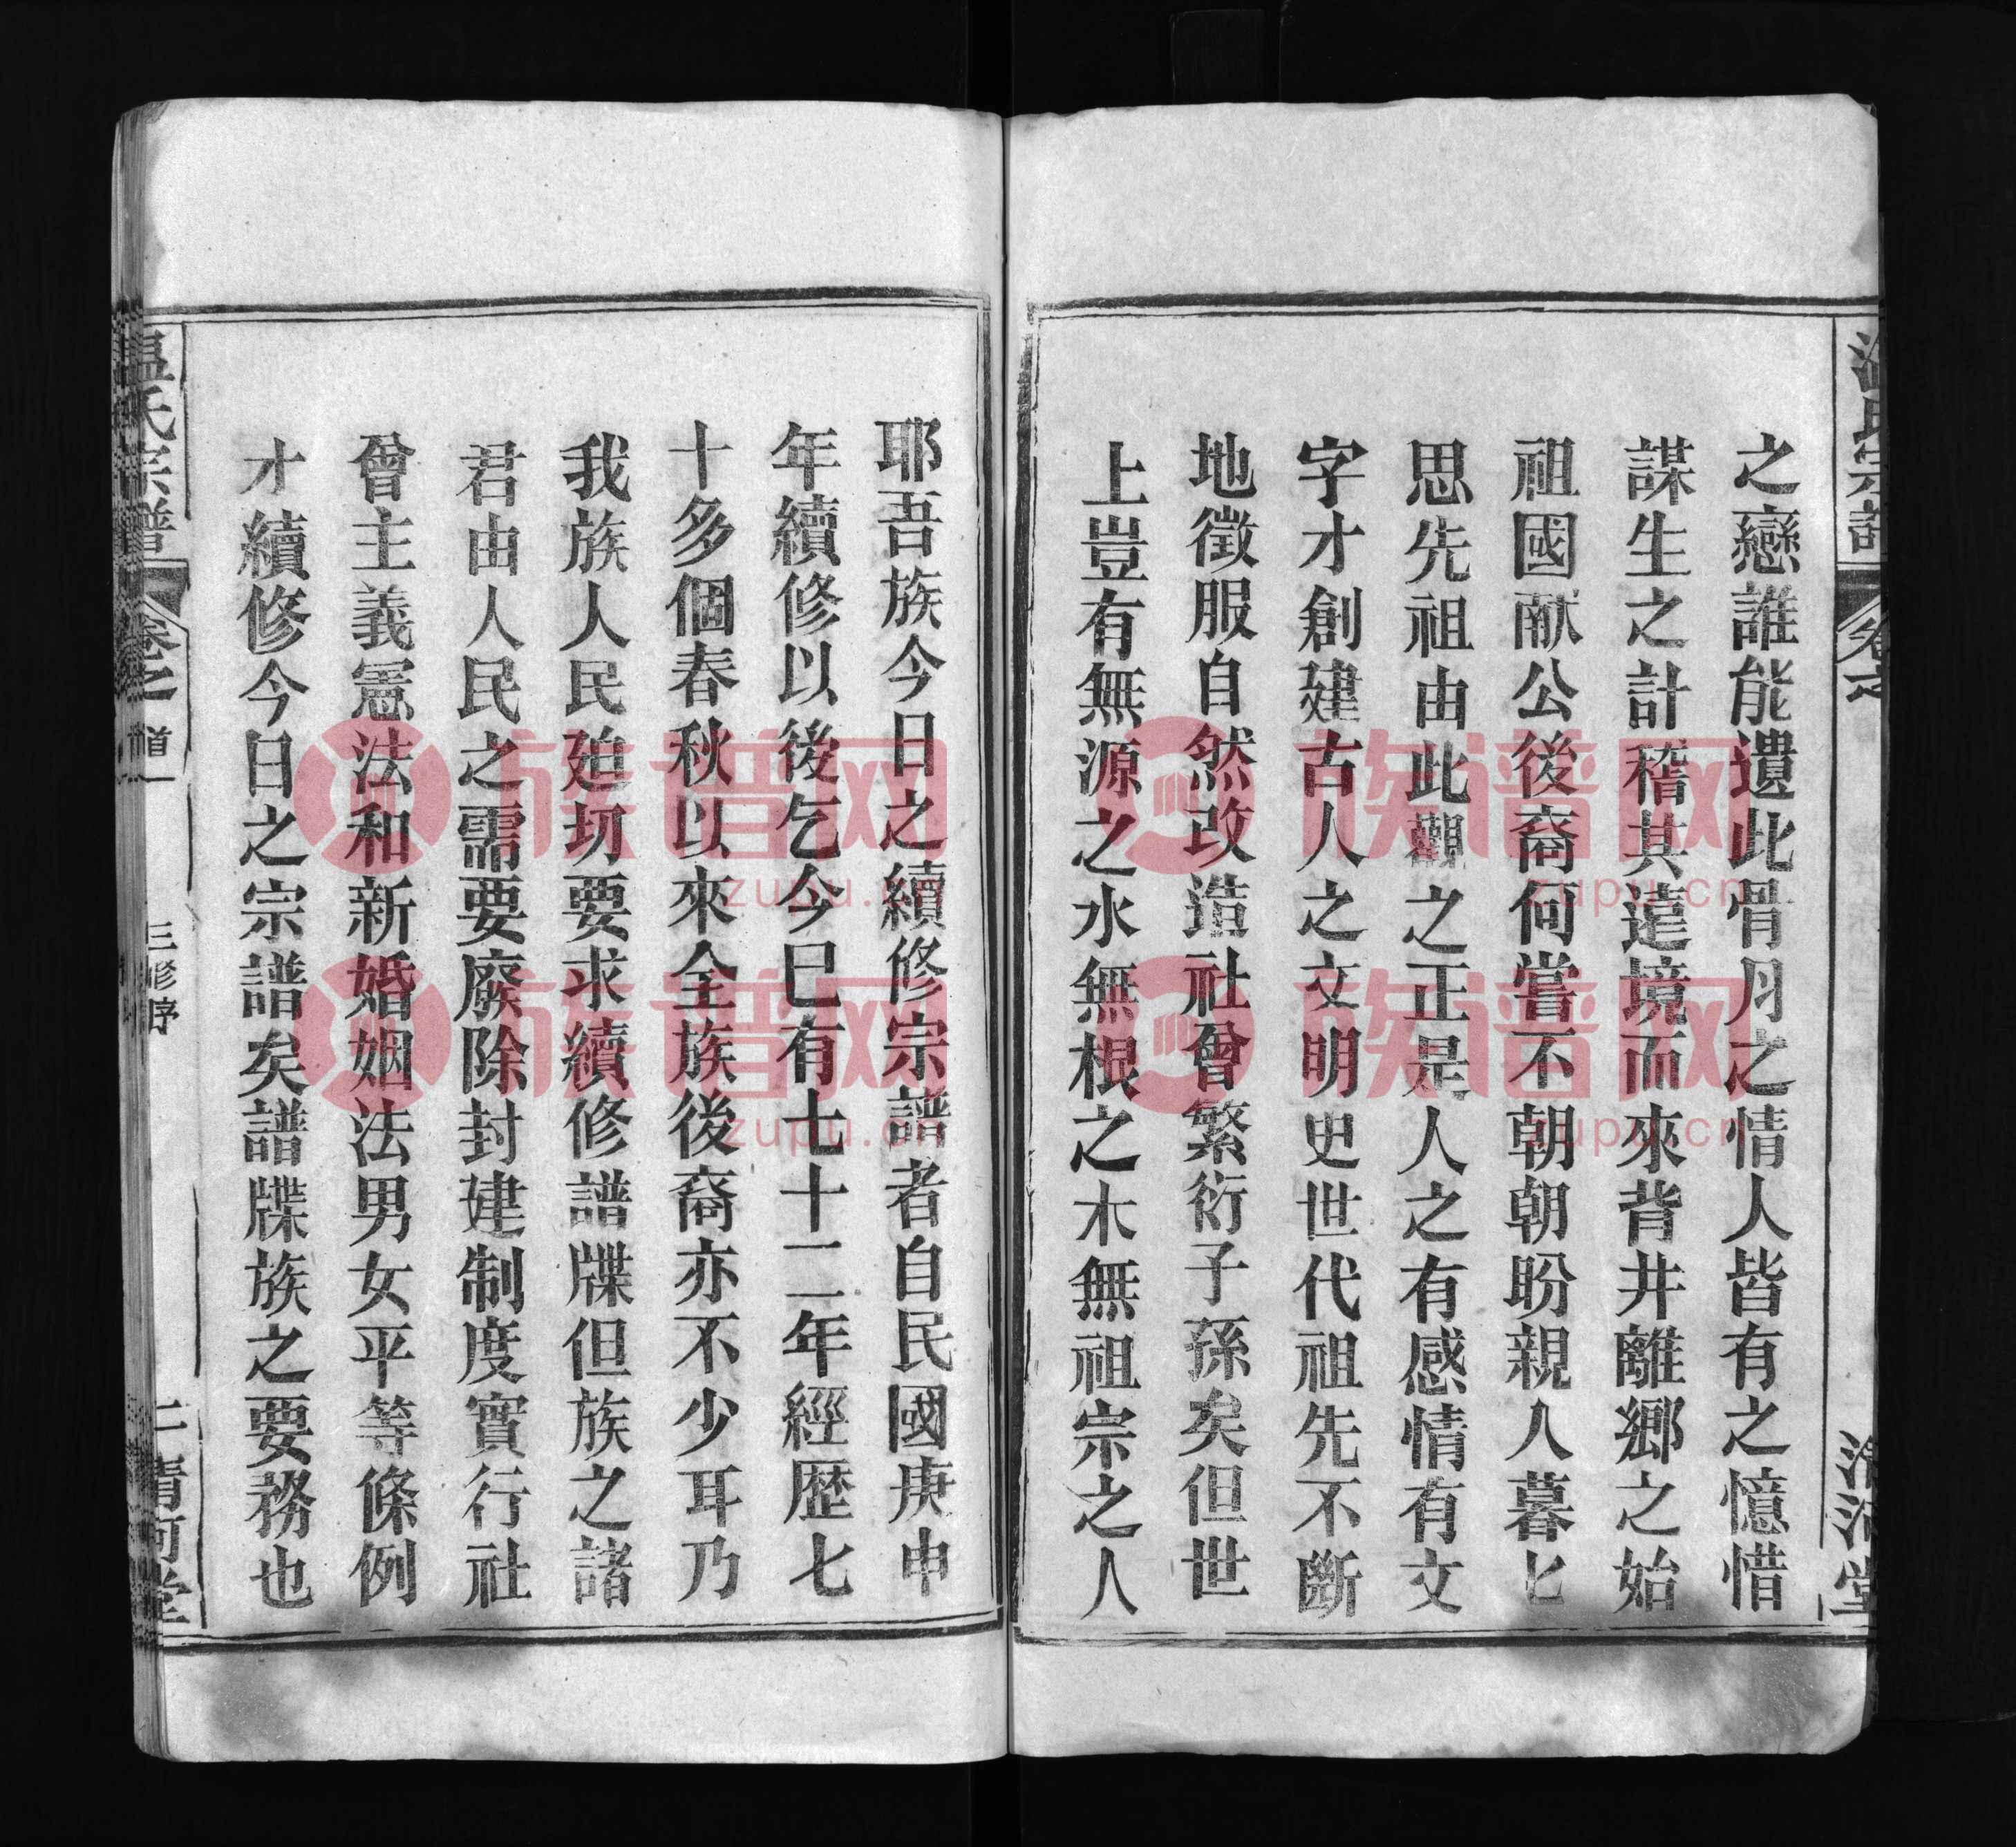 之戀誰能遺此骨月之情人皆有之憶惜
謀生之計稽其遠境而來背井離鄉之始
祖國献公後裔何嘗不朝朝盼親人暮匕
思先祖由此觀之正是人之有感情有文
字才創建古人之文明史世代祖先不斷
地徵服自然改造社會繁衍子孫矣但世
上豈有無源之水無根之木無祖宗之人
耶吾族今日之續修宗譜者自民國庚申
年續修以後乞今巳有七十二年經歷七
十多個春秋以來全族後裔亦不少耳乃
我族人民廹切要求續修譜牒但族之諸
君由人民之需要廢除封建制度實行社
曾主義憲法和新婚姻法男女平等條例
才續修今日之宗譜矣譜牒族之要務也
溫氏宗譜 卷之首 三修序 二 清河堂
族谱网
zupu.cn
族谱网
zupu.cn
族谱网
zupu.cn
族谱网
zupu.cn